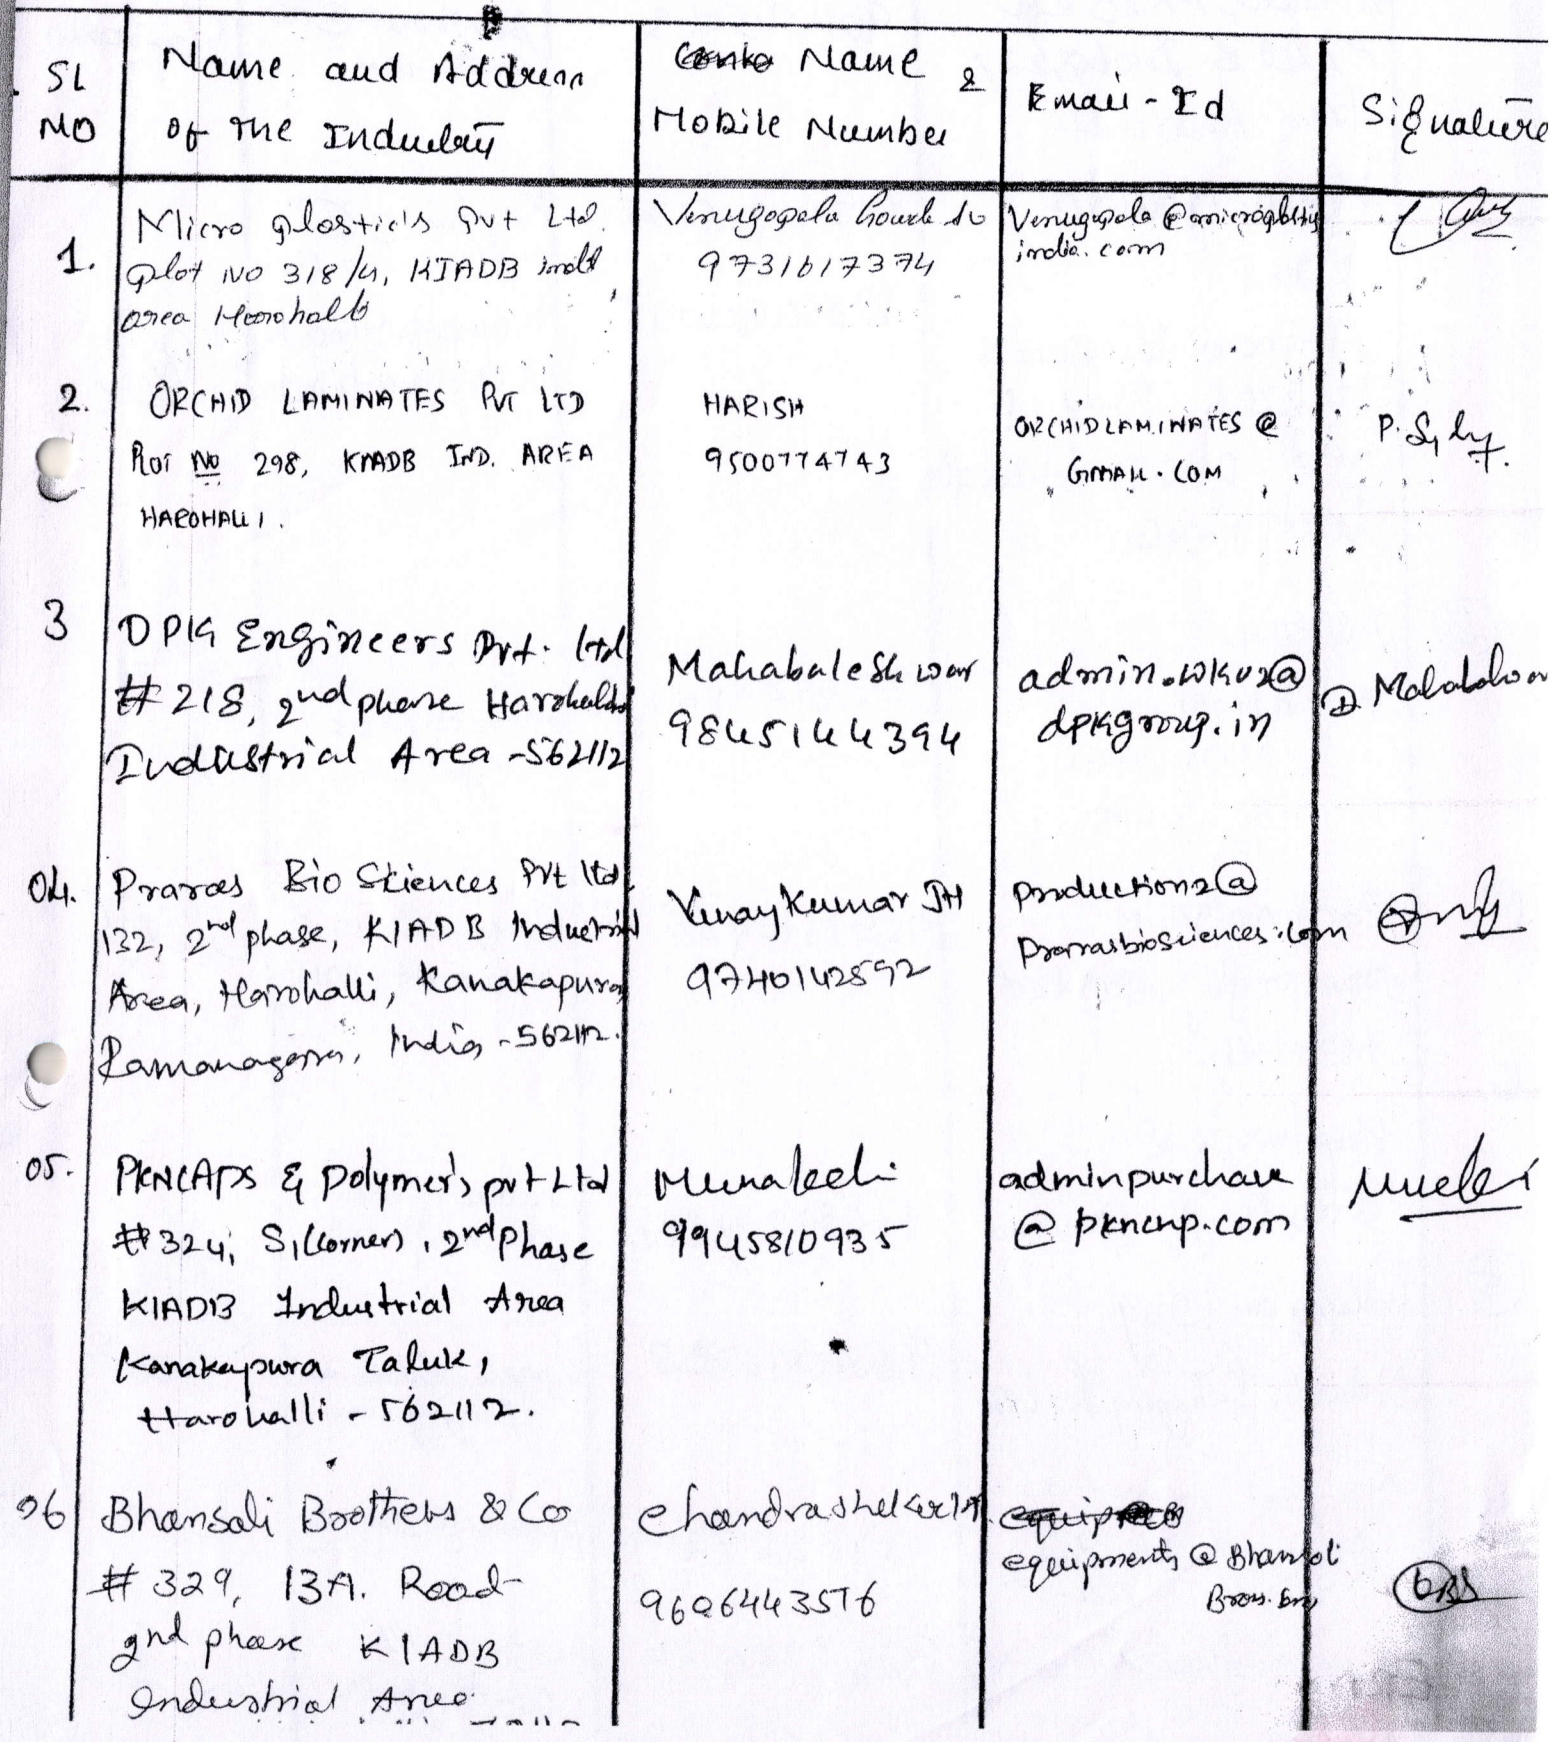 SL NO
Name and Address of the Industry
Name & Mobile Number
Email-Id
Signature
1.
Micro plastic's Pvt Ltd.
plot No 318/4, KIADB indl
area Harohalli
Venugopala Gowda
9731617374
Venugopala@microplastics
india.com
2.
ORCHID LAMINATES PVT LTD
PLOT NO 298, KIADB IND. AREA
HAROHALLI.
HARISH
9500774743
ORCHIDLAMINATES@
GMAIL.COM
3
DPKG Engineers Pvt. Ltd
# 218, 2nd phase Harohalli
Industrial Area -562112
Mahabaleshwar
9845144394
dpkggroup.in
04.
Bio Sciences Pvt ltd,
132, 2nd phase, KIADB Industrial
Area, Harohalli, Kanakapura
Ramanagara, India -562112.
Vinay Kumar
9740142592
Production2@
05.
PKNCAPS & Polymer's pvt Ltd
#324, S1(corner), 2nd Phase
KIADB Industrial Area
Kanakapura Taluk,
Harohalli - 562112.
Meenakshi
9945810935
adminpurchase
@pkncnp.com
06
Bhansali Brothers & Co
# 329, 13A. Road
2nd phase KIADB
Industrial Area
Chandrashekar
9606443576
equipments@Bhansali